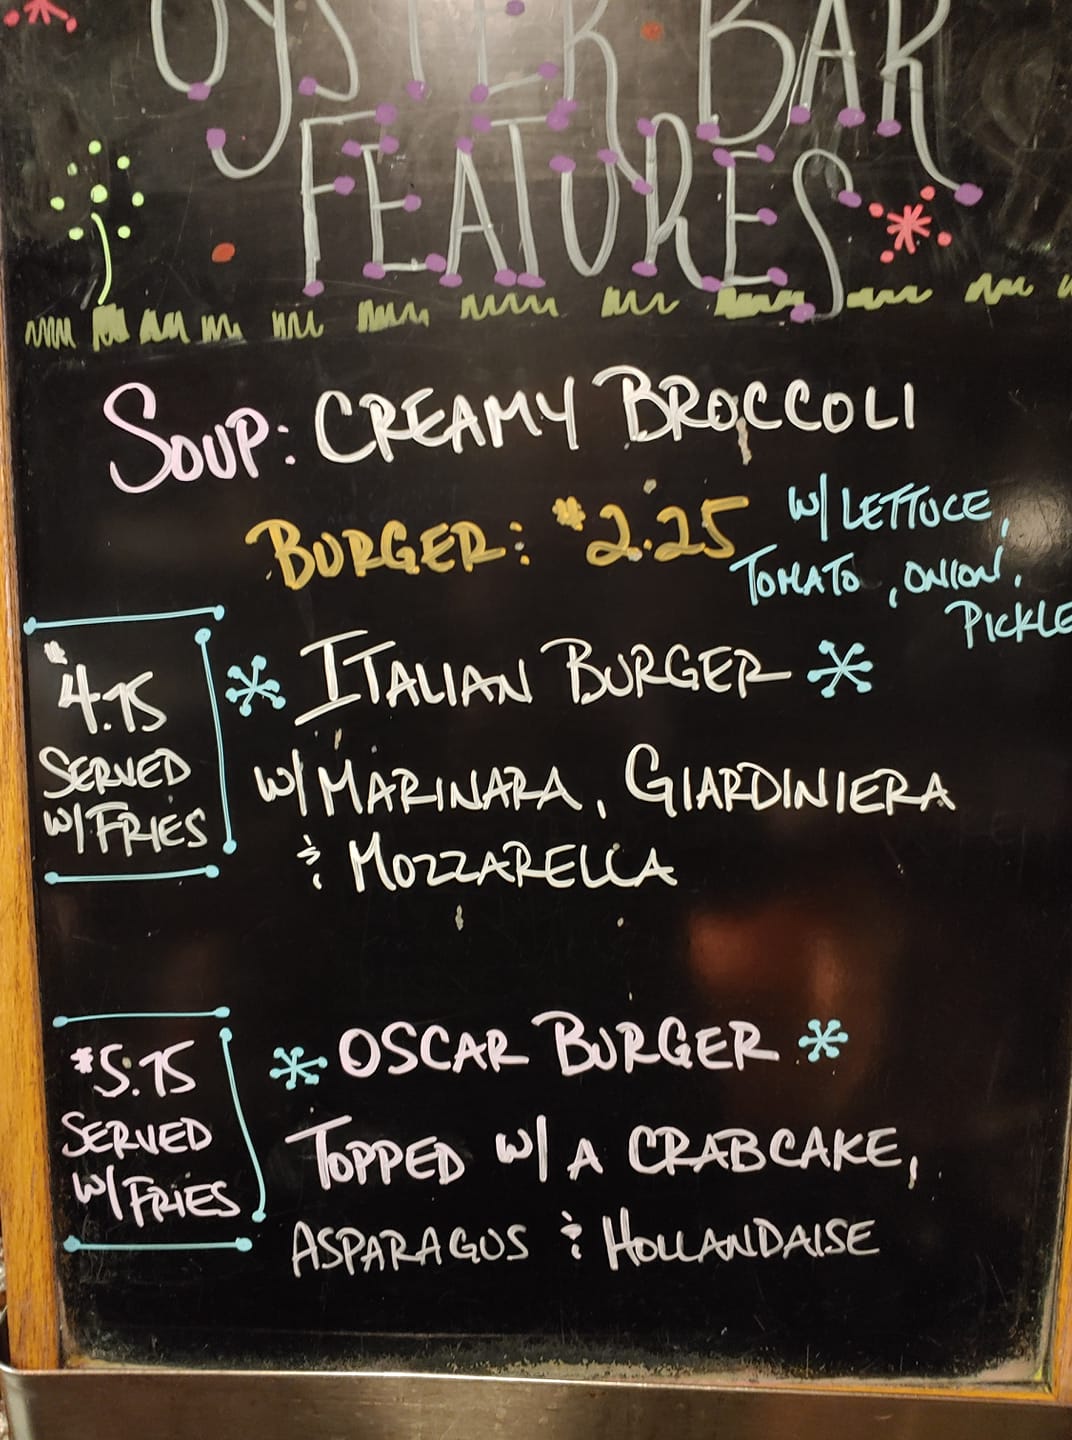 OYSTER BAR
FEATURES
SOUP: CREAMY BROCCOLI
BURGER: $2.25
W/ LETTUCE,
TOMATO, ONION,
PICKLE
$4.75
SERVED
W/ FRIES
* ITALIAN BURGER *
W/ MARINARA, GIARDINIERA
& MOZZARELLA
$5.75
SERVED
W/ FRIES
* OSCAR BURGER *
TOPPED W/ A CRABCAKE,
ASPARAGUS & HOLLANDAISE